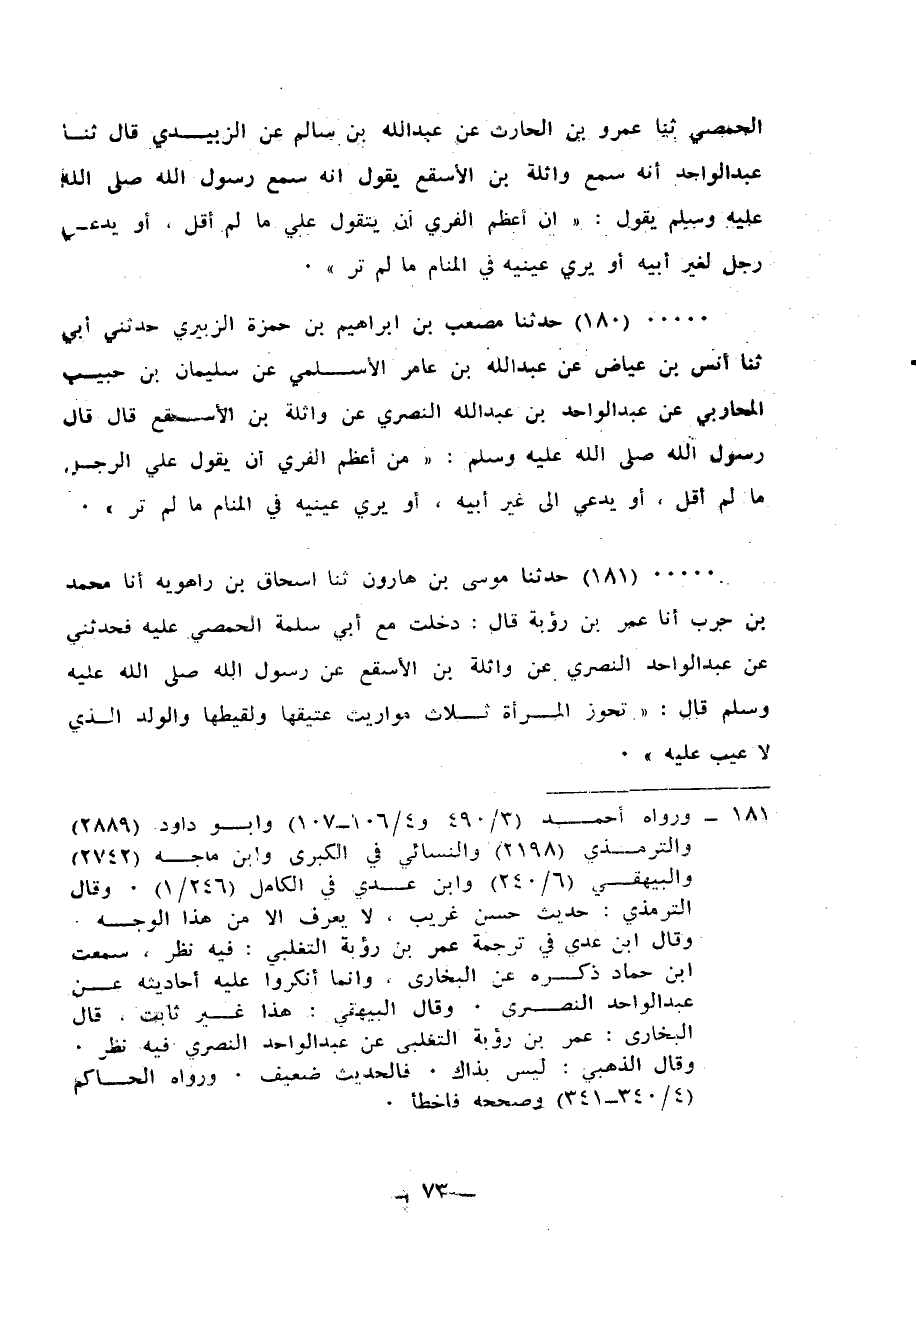 الحمصي ثنا عمرو بن الحارث عن عبدالله بن سالم عن الزبيـــدي قال ثنـا
عبدالواحد أنه سمع واثلة بن الأسقع يقول انه سمع رسول الله صلى الله
عليه وسلم يقول : « ان أعظم الفري أن يتقول علي ما لم أقل ، أو يدعـي
رجل لغير أبيه أو يري عينيه في المنام ما لم تر » ٠
٠٠٠٠٠ (١٨٠) حدثنا مصعب بن ابراهيم بن حمزة الزبيري حدثني أبي
ثنا أنس بن عياض عن عبدالله بن عامر الأســـلمي عن سليمان بن حبيـب
المحاربي عن عبدالواحد بن عبدالله النصري عن واثلة بن الأســـقع قال قال
رسول الله صلى الله عليه وسلم : « من أعظم الفري أن يقول علي الرجـل
ما لم أقل ، أو يدعي الى غير أبيه ، أو يري عينيه في المنام ما لم تر » ٠
٠٠٠٠٠ (١٨١) حدثنا موسى بن هارون ثنا اسحاق بن راهويه أنا محمد
بن حرب أنا عمر بن رؤبة قال : دخلت مع أبي سلمة الحمصي عليه فحدثني
عن عبدالواحد النصري عن واثلة بن الأسقع عن رسول الله صلى الله عليه
وسلم قال : « تحوز المــرأة ثــلاث مواريث عتيقها ولقيطها والولد الـذي
لا عيب عليه » ٠
١٨١ ـ ورواه أحمـــد (٤٩٠/٣ و١٠٦/٤ـ١٠٧) وابــو داود (٢٨٨٩)
والترمــذي (٢١٩٨) والنسائي في الكبرى وابن ماجــه (٢٧٤٢)
والبيهقـــي (٢٤٠/٦) وابن عــدي في الكامل (١/٢٤٦) ٠ وقال
الترمذي : حديث حسن غريب ، لا يعرف الا من هذا الوجــه ٠
وقال ابن عدي في ترجمة عمر بن رؤبة التغلبي : فيه نظر ، سمعت
ابن حماد ذكــره عن البخارى ، وانما أنكروا عليه أحاديثه عــن
عبدالواحد النصــرى ٠ وقال البيهقي : هذا غــير ثابت ، قال
البخارى : عمر بن رؤبة التغلبى عن عبدالواحد النصري فيه نظر ٠
وقال الذهبي : ليس بذاك ٠ فالحديث ضعيف ٠ ورواه الحــاكم
(٣٤٠/٤ـ٣٤١) وصححه فاخطأ ٠
ـ ٧٣ ـ